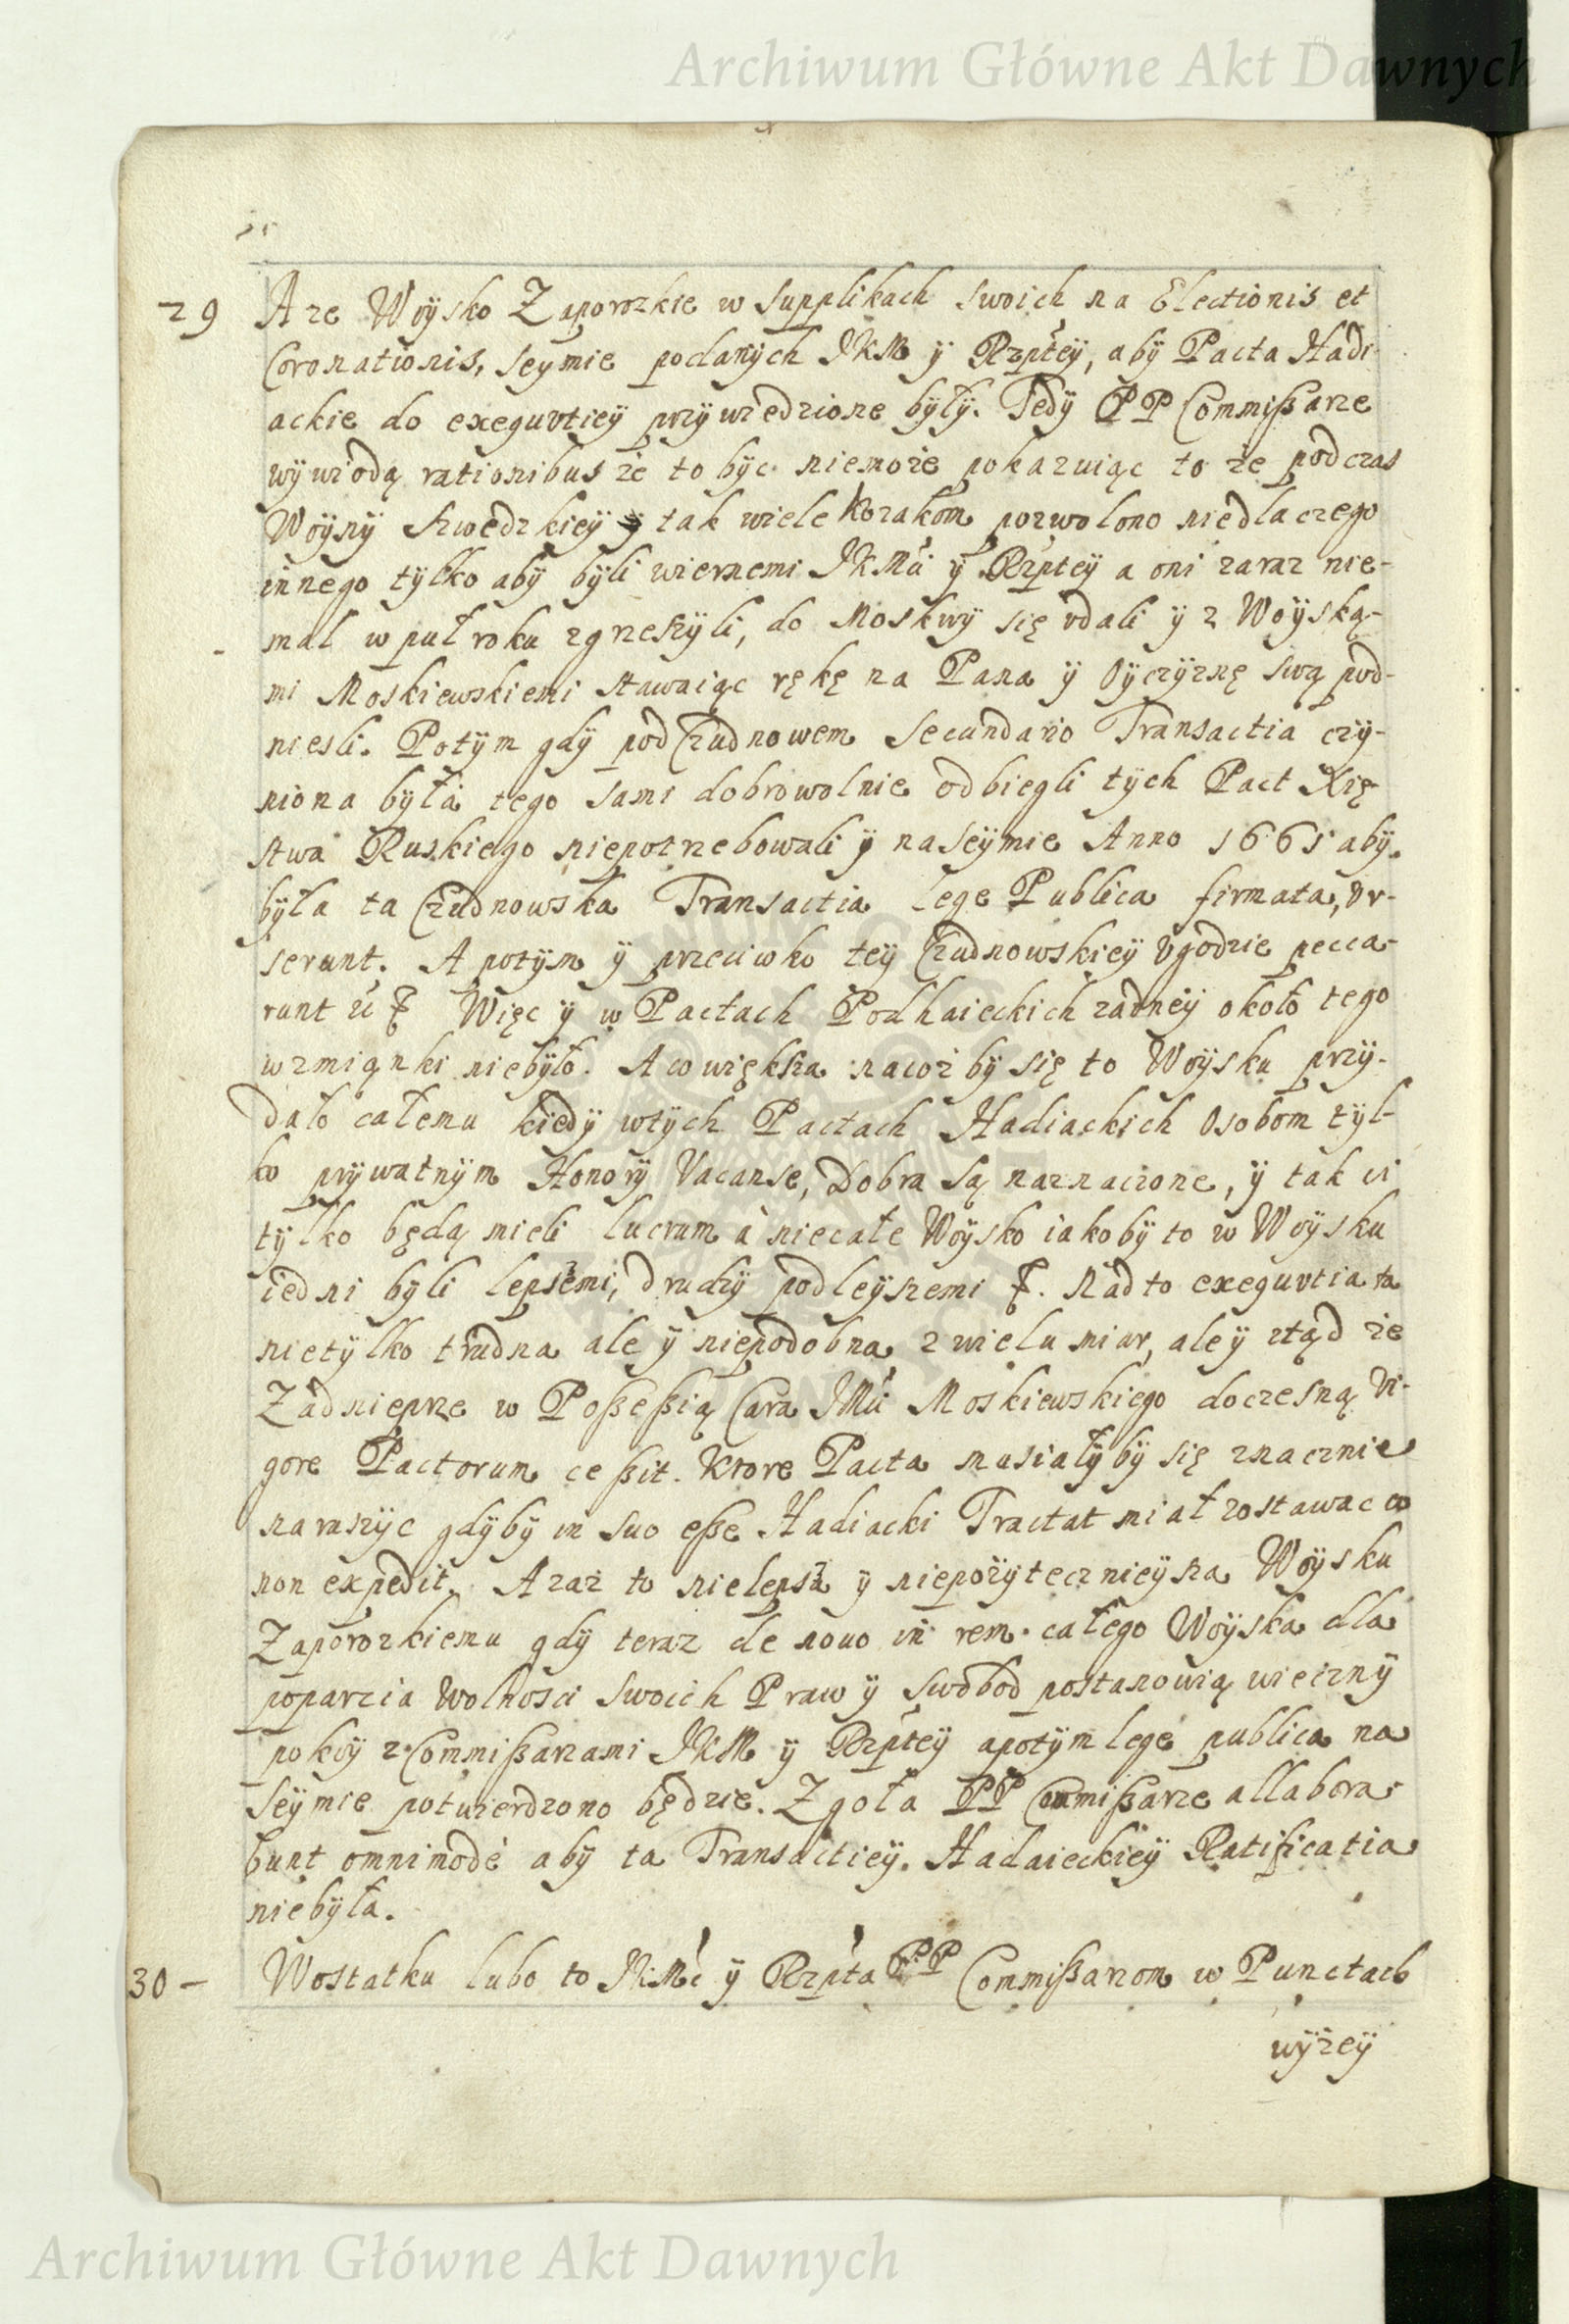 Archiwum Główne Akt Dawnych
29 A ze Woÿsko Zaporozkie w supplikach swoich na Electionis et
Coronationis, seymie podanÿch JKM ÿ Rzpteÿ, abÿ Pacta Hadi-
ackie do exequutieÿ przÿwiedzione bÿłÿ. Tedÿ PP Commißarze
wÿwiodą rationibus że to bÿc niemoże pokazuiąc to że podczas
Woÿnÿ szwedzkieÿ ÿ tak wiele kozakom pozwolono niedlaczego
innego tÿlko abÿ bÿli wiernemi JKMci ÿ Rzpteÿ a oni zaraz nie-
mal w puł roku zgrzeszÿli, do Moskwÿ się udali ÿ z Woÿską-
mi Moskiewskiemi stawaiąc rękę na Pana ÿ Oÿczÿznę swą pod-
niesli. Potÿm gdÿ pod Czudnowem secundario Transactia czÿ-
niona bÿła tego sami dobrowolnie odbiegli tÿch Pact Xię-
stwa Ruskiego niepotrzebowali ÿ naseÿmie Anno 1661 abÿ
bÿła ta Czudnowska Transactia lege Publica firmata, Ur-
serunt. A potÿm ÿ przeciwko teÿ Czudnowskieÿ Ugodzie pecca-
runt Więc ÿ w Pactach Podhaieckich żadneÿ około tego
wzmiąnki niebÿło. A co większa nacoż bÿ się to Woÿsku przÿ-
dało całemu kiedÿ wtÿch Pactach Hadiackich Osobom tÿl-
ko prÿwatnÿm Honorÿ Vacanse, Dobra są naznaczone, ÿ tak ci
tÿlko będą mieli lucrum à niecałe Woÿsko iakobÿ to w Woÿsku
iedni bÿli lepszemi, drudzÿ podleÿszemi Nadto exequutia ta
nietÿlko trudna ale ÿ niepodobna z wielu miar, ale ÿ ztąd że
Zadnieprze w Poßeßią Cara JMci Moskiewskiego doczesną Vi-
gore Pactorum ceßit. Ktore Pacta musiałÿ bÿ się znacznie
naraszÿc gdÿbÿ in suo eße Hadiacki Tractat miał zostawac co
non expedit. Azaż to nielepsza ÿ niepożÿtecznieÿsza Woÿsku
Zaporozkiemu gdÿ teraz de nouo in rem całego Woÿska dla
poparcia Wolnosci swoich Praw ÿ swobod postanowią wiecznÿ
pokoÿ z Commißarzami JKM ÿ Rzpteÿ apotÿm lege publica na
Seÿmie potwierdzono będzie. Zgoła PP Commißarze allabora-
bunt omnimodè abÿ ta Transactieÿ Hadaieckieÿ Ratificatia
niebÿła.
30 – Wostatku lubo to JKMc ÿ Rzpta PP Commißarzom w Punctach
wÿżeÿ
Archiwum Główne Akt Dawnych